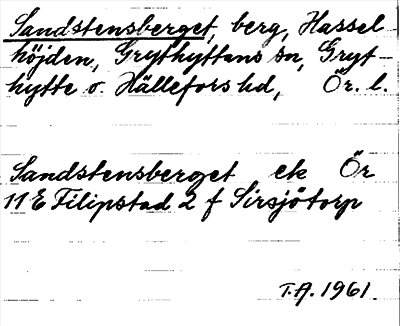 Sandstensberget, berg, Hassel-
höjden, Grythyttans sn, Gryt-
hytte o. Hällefors hd, Ör. l.
Sandstensberget ek Ör
11 E Filipstad 2 f Sirsjötorp
T.A. 1961.